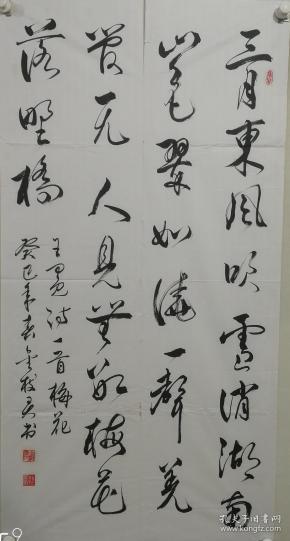 三月東風吹雪消湖南
山色翠如澆一聲羌
管無人見無數梅花
落野橋
王冕詩一首梅花
癸巳年春
孔夫子旧书网